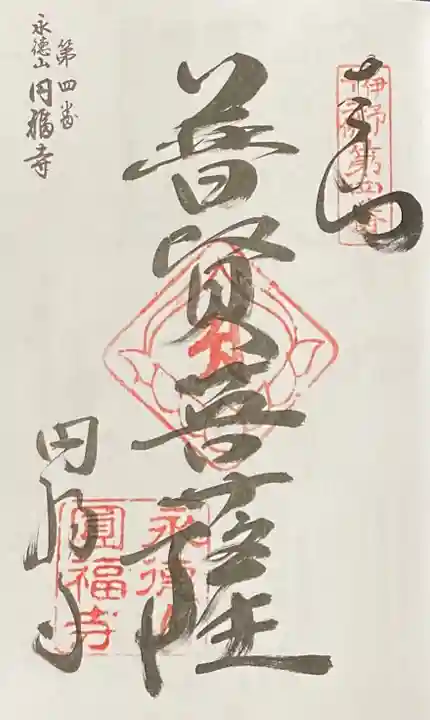 奉拝
伊予
十三佛
第四番
普賢菩薩
円福寺
永徳山
圓福寺
第四番
永徳山 円福寺